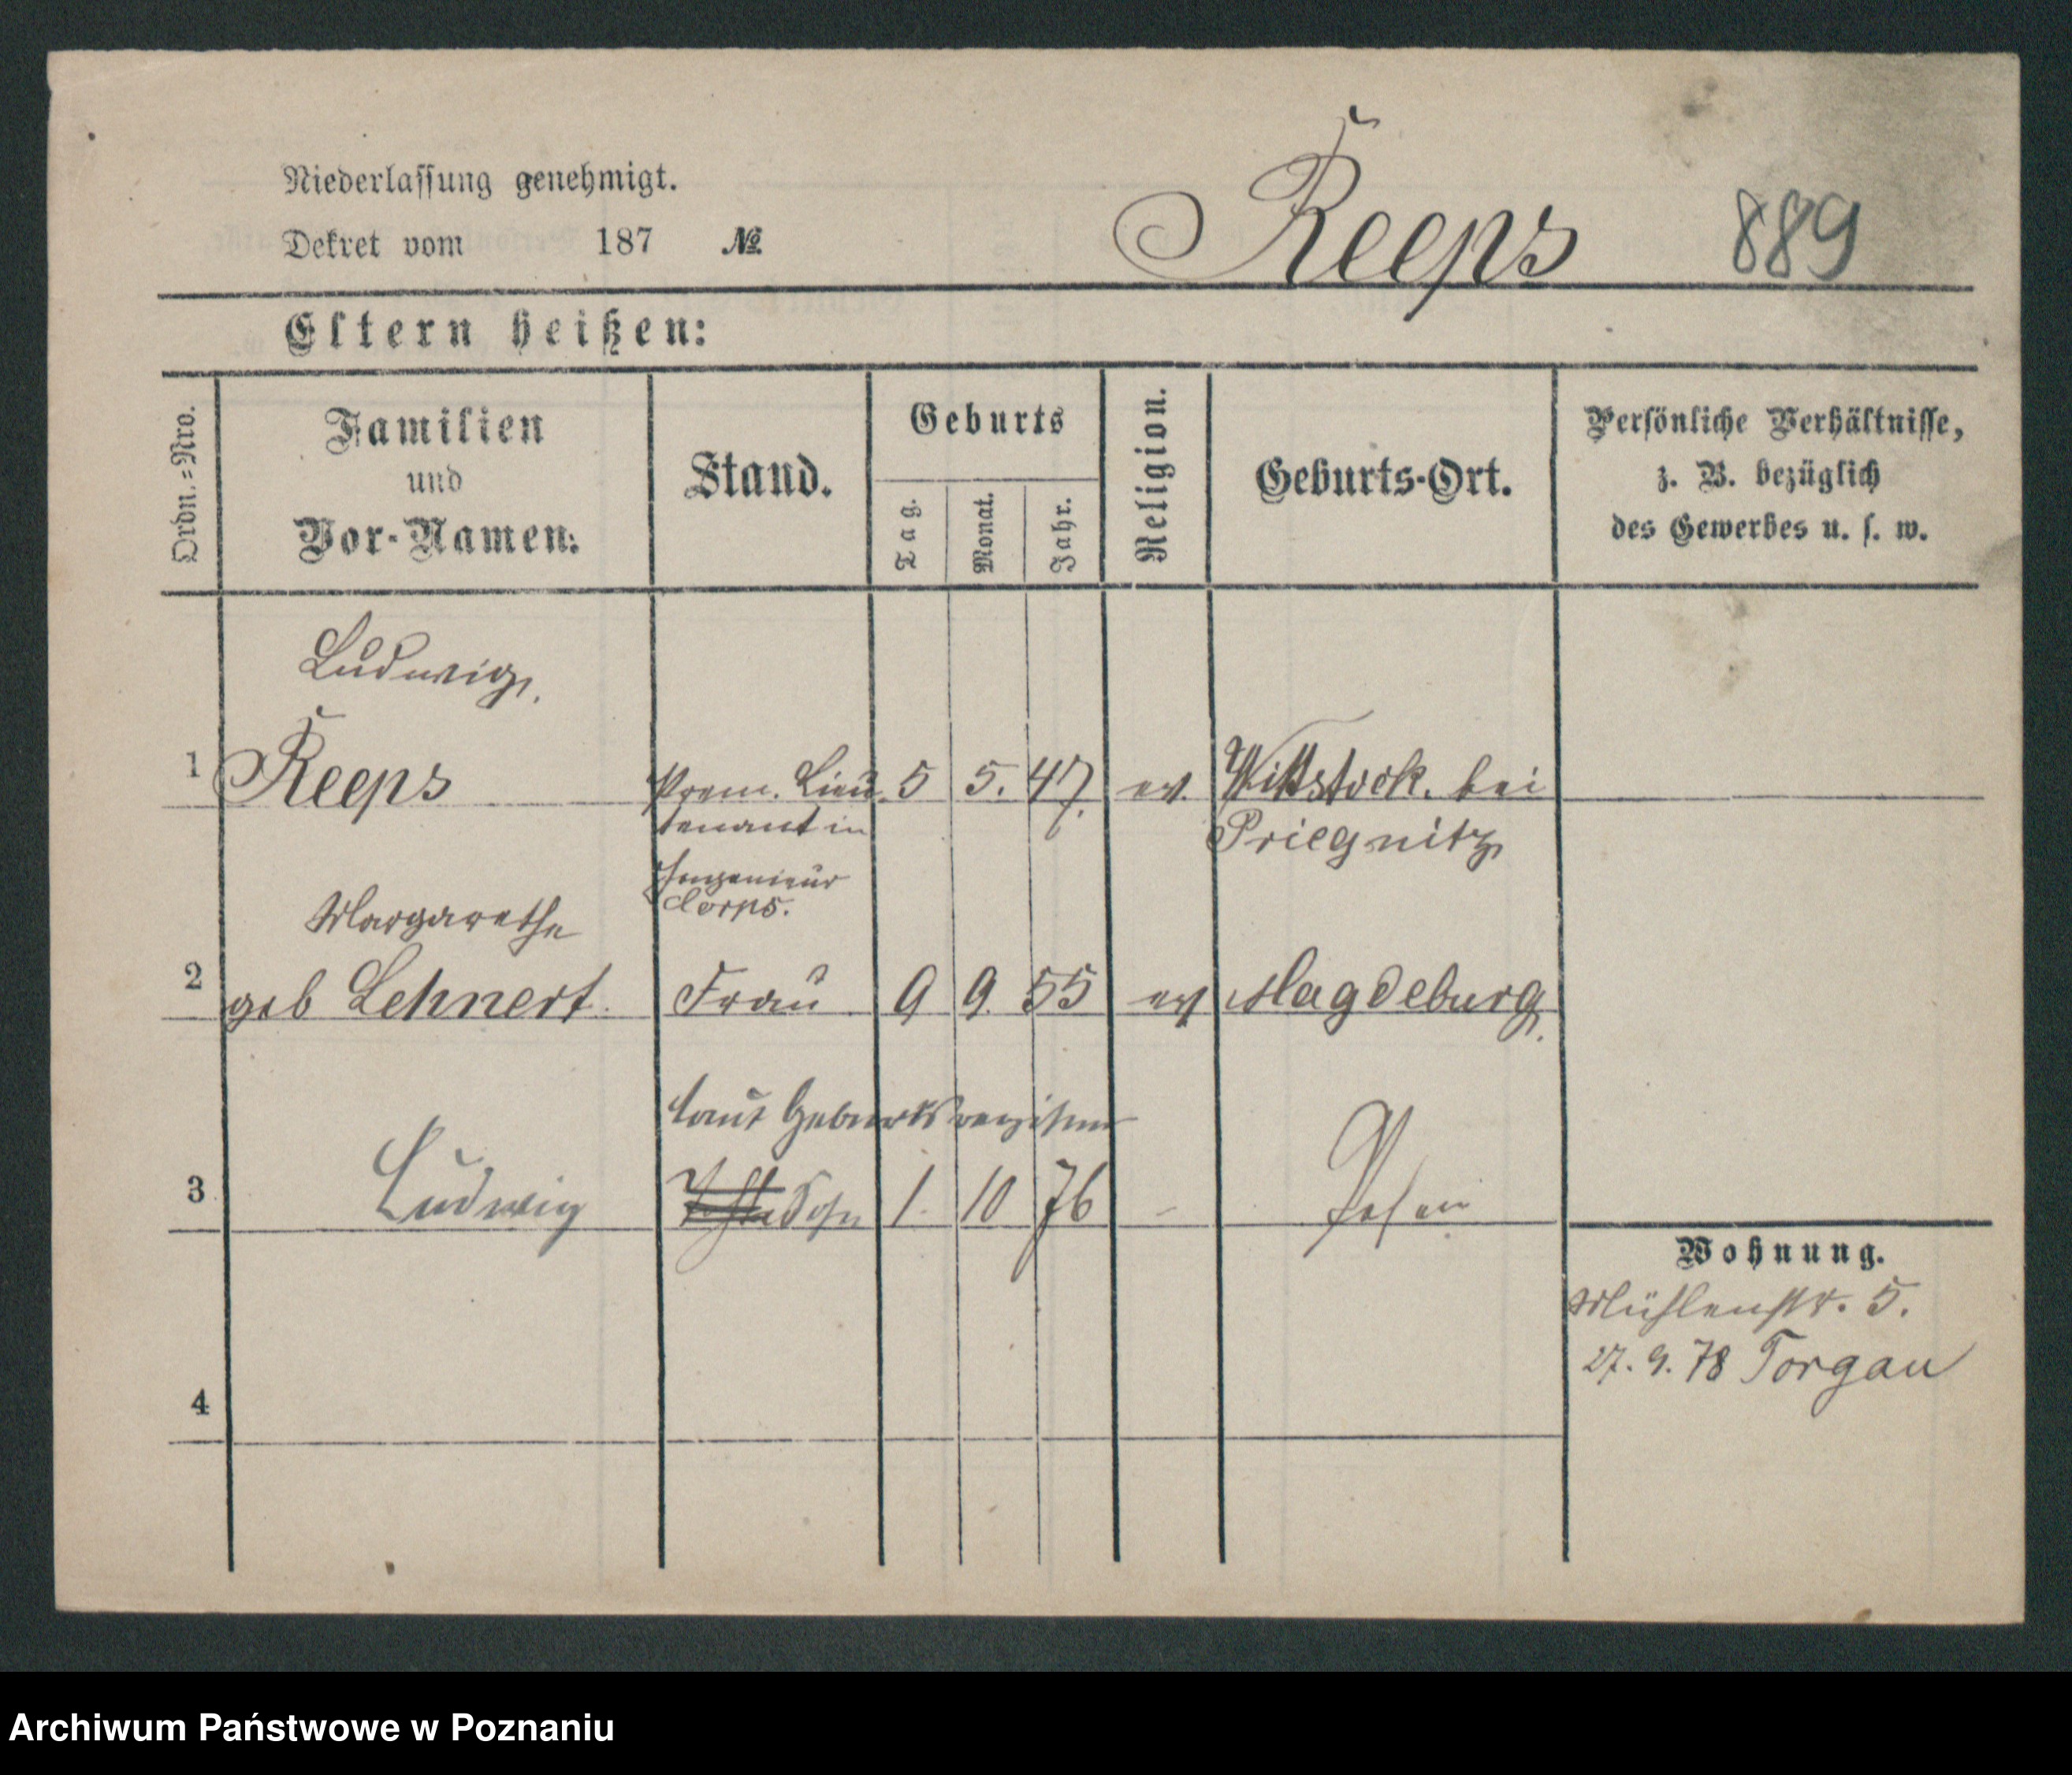 Niederlassung genehmigt.
Dekret vom 187 №
Reeps 889
Eltern heißen:
Ordn.=Nro.
Familien
und
Vor-Namen:
Stand.
Geburts
Tag.
Monat.
Jahr.
Religion.
Geburts-Ort.
Persönliche Verhältnisse,
z. B. bezüglich
des Gewerbes u. s. w.
Ludwig.
1 Reeps Prem. Lieu 5 5. 47. ev. Wittstock. bei
tenant in Priegnitz
Ingenieur
Corps.
Margarethe
2 geb Lehnert. Frau 9 9. 55 ev Magdeburg.
laut Geburtsregister
3 Ludwig Sohn 1. 10 76 - Posen
Wohnung.
Mühlenstr. 5.
27. 9. 78 Torgau
4
Archiwum Państwowe w Poznaniu